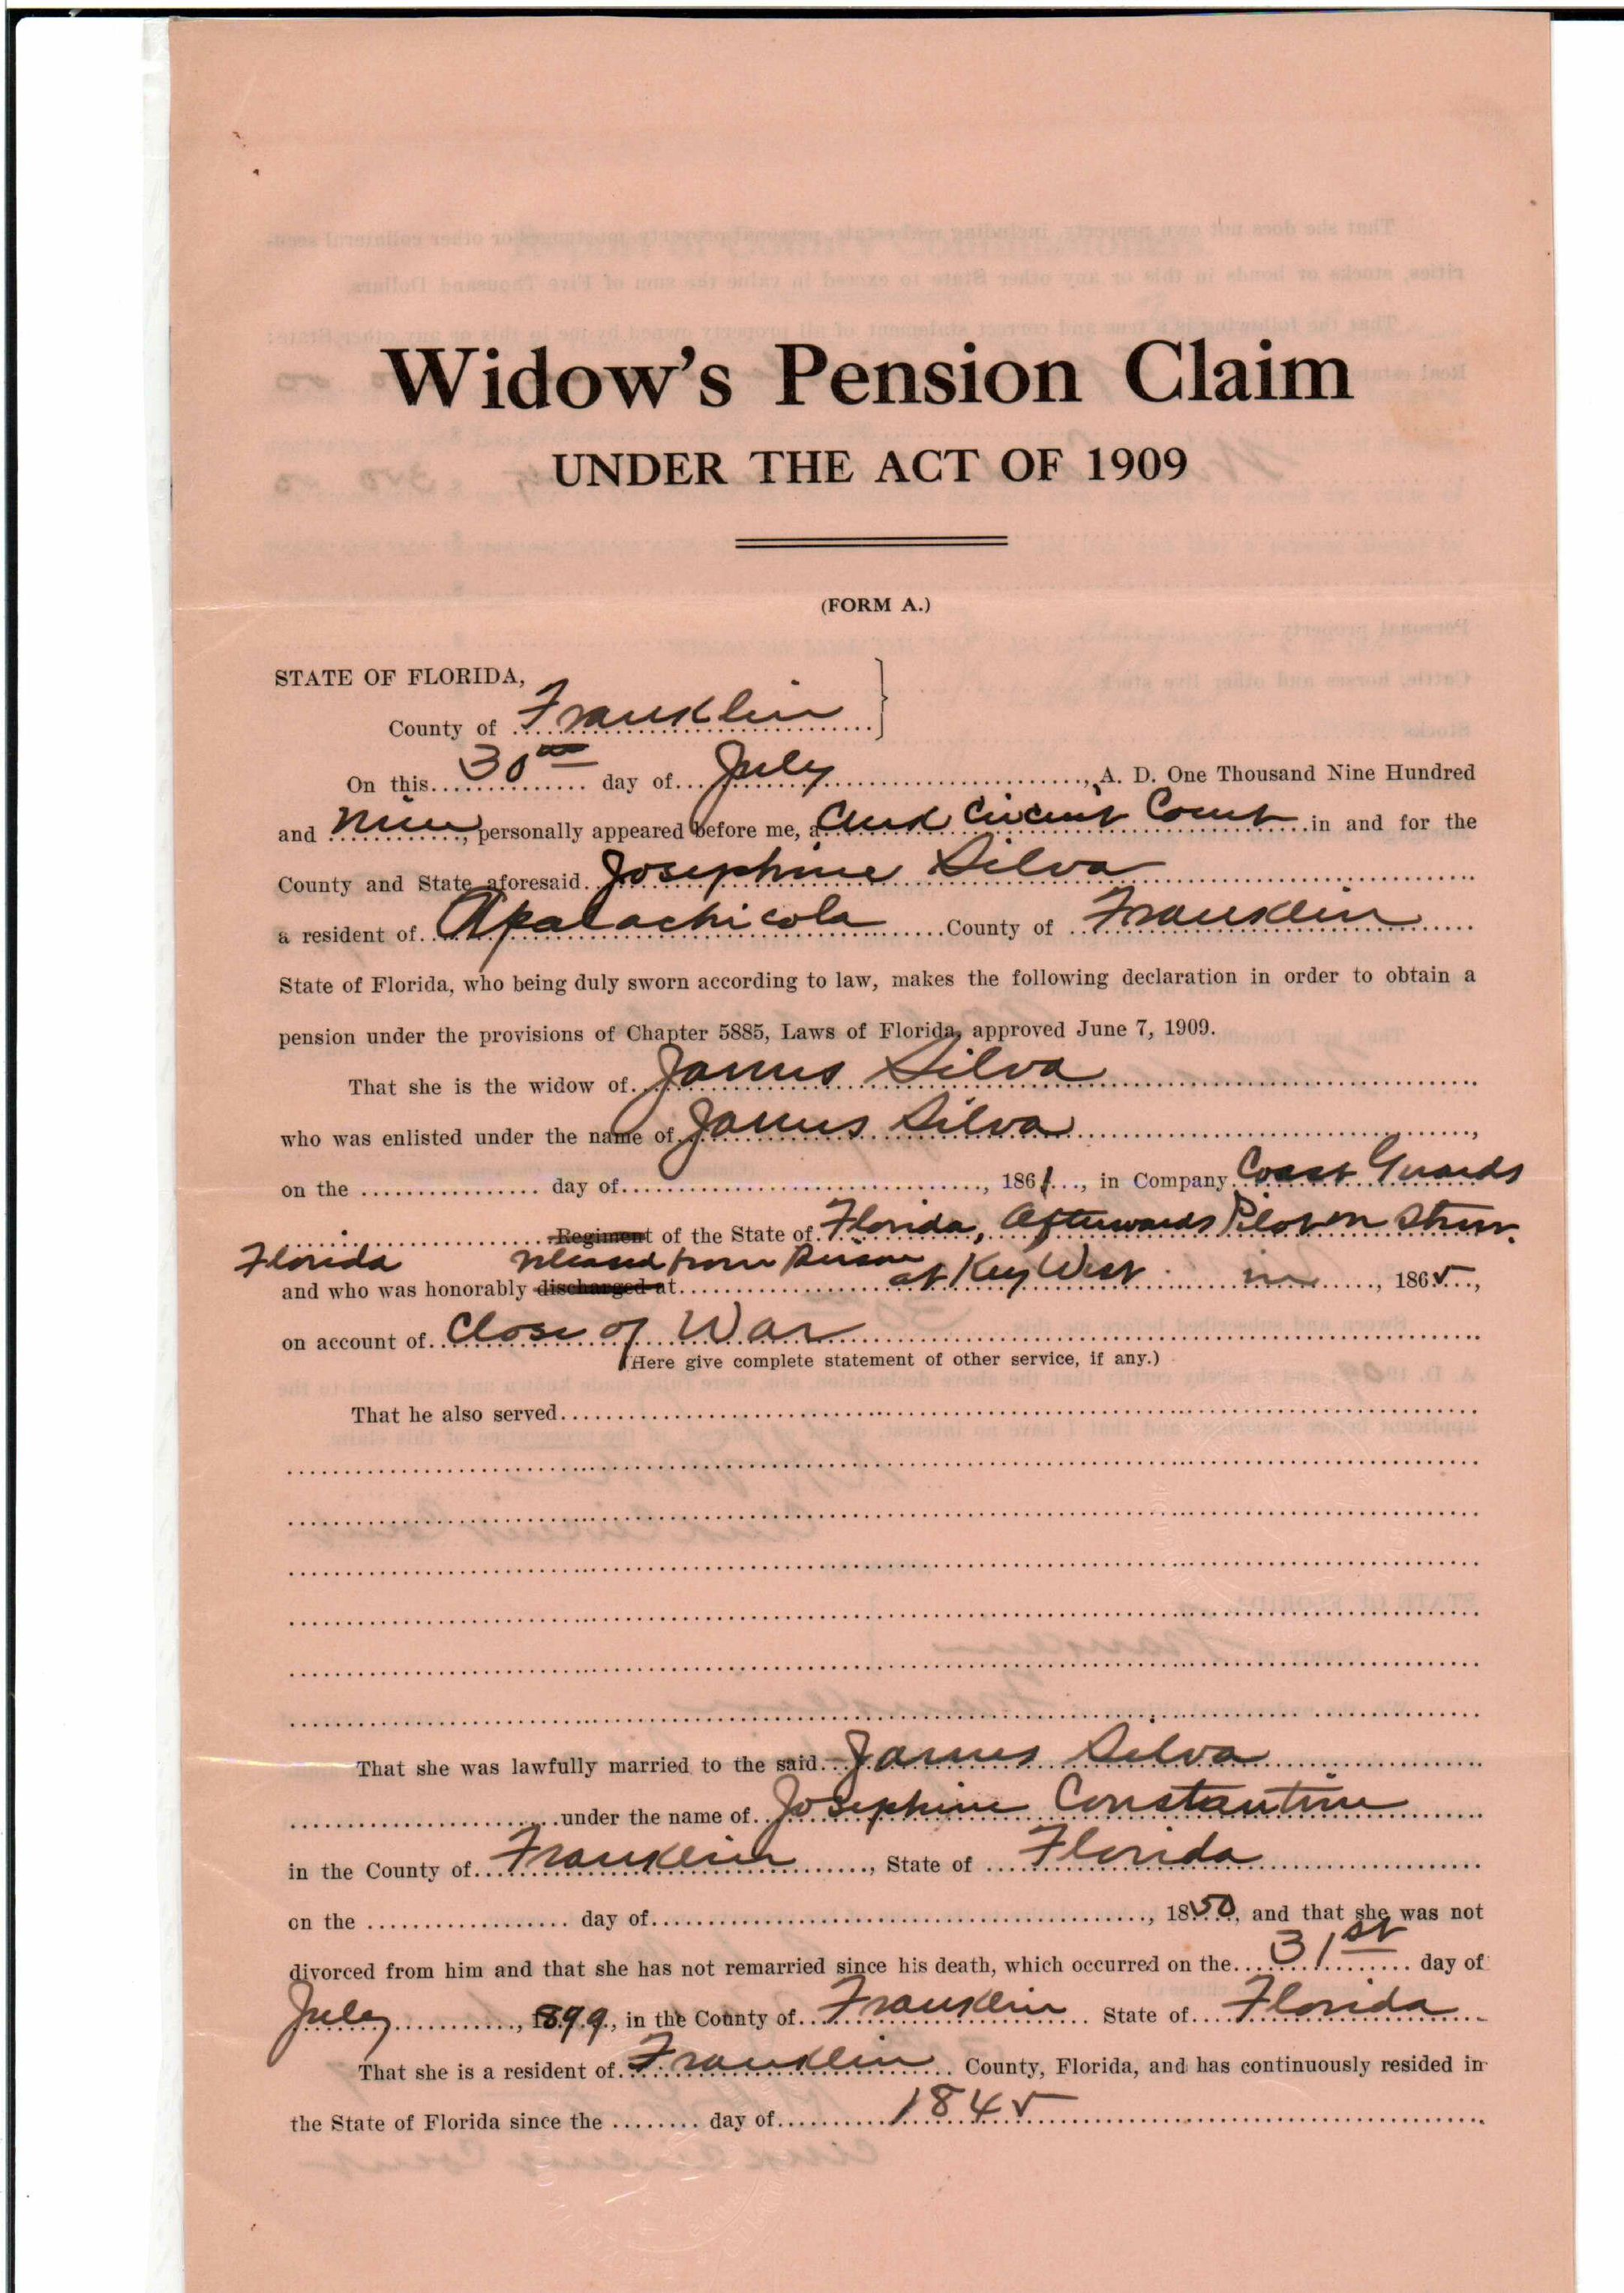 Widow's Pension Claim
UNDER THE ACT OF 1909
(FORM A.)
STATE OF FLORIDA,
County of Franklin
On this 30th day of July, A. D. One Thousand Nine Hundred
and Nine, personally appeared before me, a Clerk Circuit Court in and for the
County and State aforesaid Josephine Silva
a resident of Apalachicola County of Franklin
State of Florida, who being duly sworn according to law, makes the following declaration in order to obtain a
pension under the provisions of Chapter 5885, Laws of Florida, approved June 7, 1909.
That she is the widow of James Silva
who was enlisted under the name of James Silva,
on the day of, 1861, in Company Coast Guards
Regiment of the State of Florida, Afterwards Pilot on Stmr.
Florida released from Prison
and who was honorably discharged at at Key West in, 1865,
on account of Close of War
(Here give complete statement of other service, if any.)
That he also served
That she was lawfully married to the said James Silva
under the name of Josephine Constantine
in the County of Franklin, State of Florida
on the day of, 1850, and that she was not
divorced from him and that she has not remarried since his death, which occurred on the 31st day of
July, 1899, in the County of Franklin State of Florida
That she is a resident of Franklin County, Florida, and has continuously resided in
the State of Florida since the day of 1845